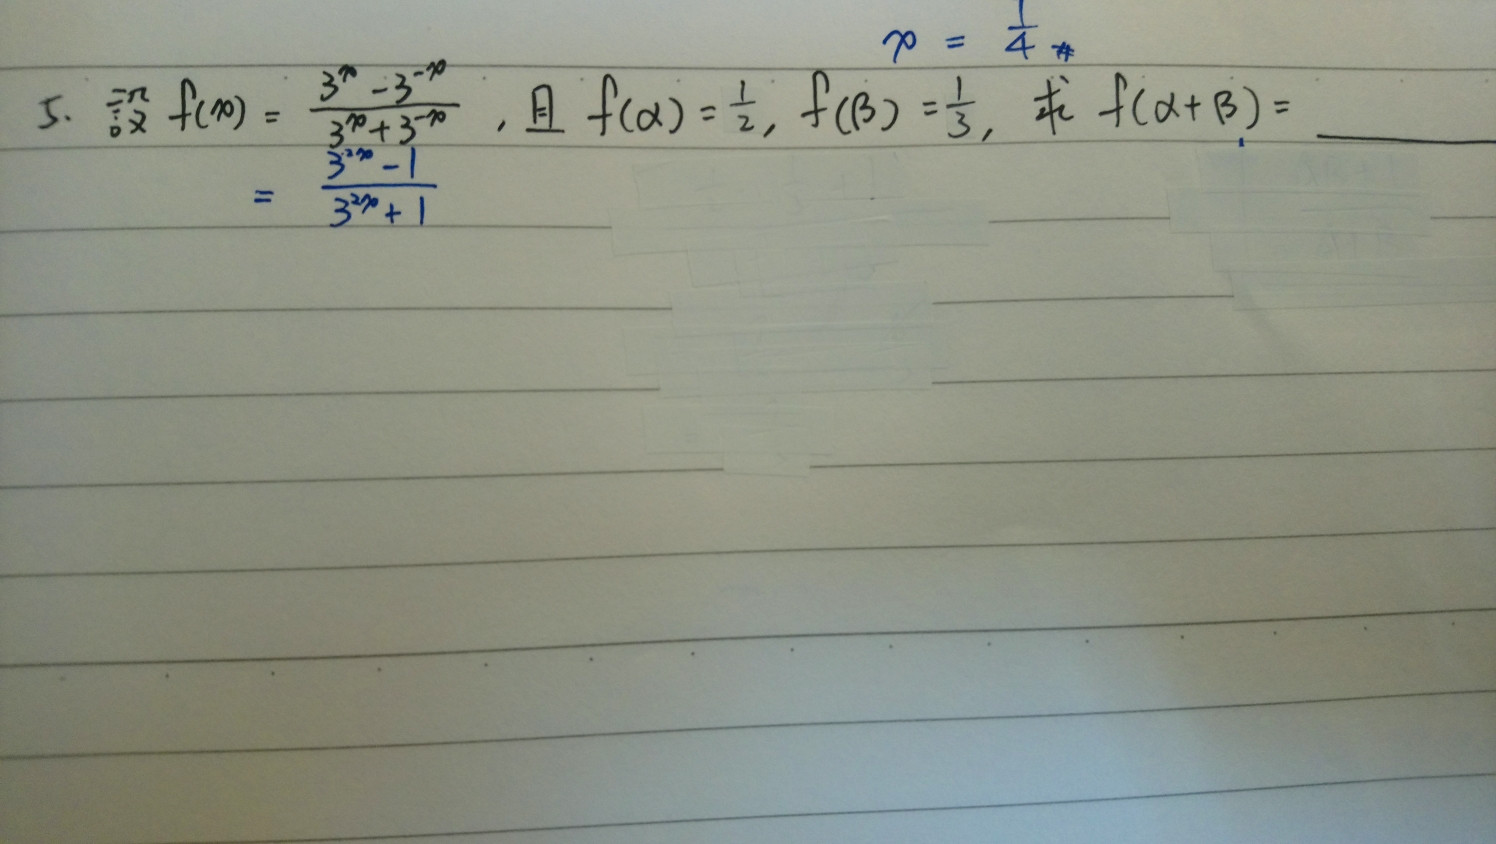 x = 1/4 #
5. 設 f(x) = (3^x - 3^-x)/(3^x + 3^-x) , 且 f(α) = 1/2, f(β) = 1/3, 求 f(α+β) = ____
= (3^2x - 1)/(3^2x + 1)